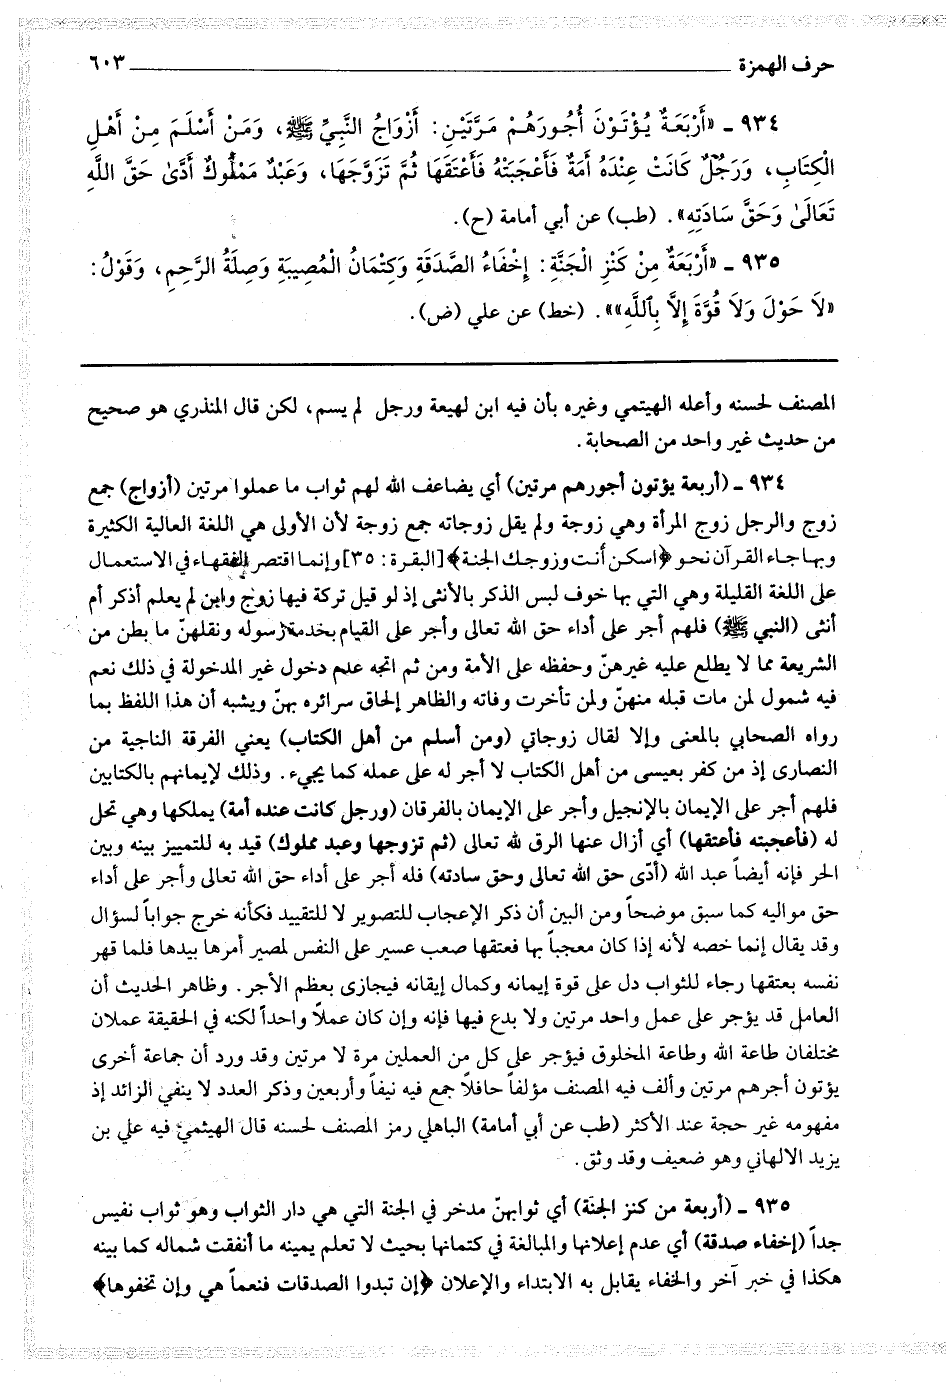 حرف الهمزة ٦٠٣
٩٣٤ ـ «أَرْبَعَةٌ يُؤْتَوْنَ أُجُورَهُمْ مَرَّتَيْنِ: أَزْوَاجُ النَّبِيِّ ﷺ، وَمَنْ أَسْلَمَ مِنْ أَهْلِ
الْكِتَابِ، وَرَجُلٌ كَانَتْ عِنْدَهُ أَمَةٌ فَأَعْجَبَتْهُ فَأَعْتَقَهَا ثُمَّ تَزَوَّجَهَا، وَعَبْدٌ مَمْلُوكٌ أَدَّىٰ حَقَّ اللَّهِ
تَعَالَىٰ وَحَقَّ سَادَتِهِ». (طب) عن أبي أمامة (ح).
٩٣٥ ـ «أَرْبَعَةٌ مِنْ كَنْزِ الْجَنَّةِ: إِخْفَاءُ الصَّدَقَةِ وَكِتْمَانُ الْمُصِيبَةِ وَصِلَةُ الرَّحِمِ، وَقَوْلُ:
«لَا حَوْلَ وَلَا قُوَّةَ إِلَّا بِٱللَّهِ»». (خط) عن علي (ض).
المصنف لحسنه وأعله الهيتمي وغيره بأن فيه ابن لهيعة ورجل لم يسم، لكن قال المنذري هو صحيح
من حديث غير واحد من الصحابة.
٩٣٤ ـ (أربعة يؤتون أجورهم مرتين) أي يضاعف الله لهم ثواب ما عملوا مرتين (أزواج) جمع
زوج والرجل زوج المرأة وهي زوجة ولم يقل زوجاته جمع زوجة لأن الأولى هي اللغة العالية الكثيرة
وبها جاء القرآن نحو ﴿اسكن أنت وزوجك الجنة﴾ [البقرة: ٣٥] وإنما اقتصر الفقهاء في الاستعمال
على اللغة القليلة وهي التي بها خوف لبس الذكر بالأنثى إذ لو قيل تركة فيها زوج وابن لم يعلم أذكر أم
أنثى (النبي ﷺ) فلهم أجر على أداء حق الله تعالى وأجر على القيام بخدمة رسوله ونقلهنّ ما بطن من
الشريعة مما لا يطلع عليه غيرهنّ وحفظه على الأمة ومن ثم اتجه عدم دخول غير المدخولة في ذلك نعم
فيه شمول لمن مات قبله منهنّ ولمن تأخرت وفاته والظاهر إلحاق سرائره بهنّ ويشبه أن هذا اللفظ بما
رواه الصحابي بالمعنى وإلا لقال زوجاتي (ومن أسلم من أهل الكتاب) يعني الفرقة الناجية من
النصارى إذ من كفر بعيسى من أهل الكتاب لا أجر له على عمله كما يجيء. وذلك لإيمانهم بالكتابين
فلهم أجر على الإيمان بالإنجيل وأجر على الإيمان بالفرقان (ورجل كانت عنده أمة) يملكها وهي تحل
له (فأعجبته فأعتقها) أي أزال عنها الرق لله تعالى (ثم تزوجها وعبد مملوك) قيد به للتمييز بينه وبين
الحر فإنه أيضاً عبد الله (أدّى حق الله تعالى وحق سادته) فله أجر على أداء حق الله تعالى وأجر على أداء
حق مواليه كما سبق موضحاً ومن البين أن ذكر الإعجاب للتصوير لا للتقييد فكأنه خرج جواباً لسؤال
وقد يقال إنما خصه لأنه إذا كان معجباً بها فعتقها صعب عسير على النفس لمصير أمرها بيدها فلما قهر
نفسه بعتقها رجاء للثواب دل على قوة إيمانه وكمال إيقانه فيجازى بعظم الأجر. وظاهر الحديث أن
العامل قد يؤجر على عمل واحد مرتين ولا بدع فيها فإنه وإن كان عملاً واحداً لكنه في الحقيقة عملان
مختلفان طاعة الله وطاعة المخلوق فيؤجر على كل من العملين مرة لا مرتين وقد ورد أن جماعة أخرى
يؤتون أجرهم مرتين وألف فيه المصنف مؤلفاً حافلاً جمع فيه نيفاً وأربعين وذكر العدد لا ينفي الزائد إذ
مفهومه غير حجة عند الأكثر (طب عن أبي أمامة) الباهلي رمز المصنف لحسنه قال الهيثمي فيه علي بن
يزيد الالهاني وهو ضعيف وقد وثق.
٩٣٥ ـ (أربعة من كنز الجنة) أي ثوابهنّ مدخر في الجنة التي هي دار الثواب وهو ثواب نفيس
جداً (إخفاء صدقة) أي عدم إعلانها والمبالغة في كتمانها بحيث لا تعلم يمينه ما أنفقت شماله كما بينه
هكذا في خبر آخر والخفاء يقابل به الابتداء والإعلان ﴿إن تبدوا الصدقات فنعماً هي وإن تخفوها﴾